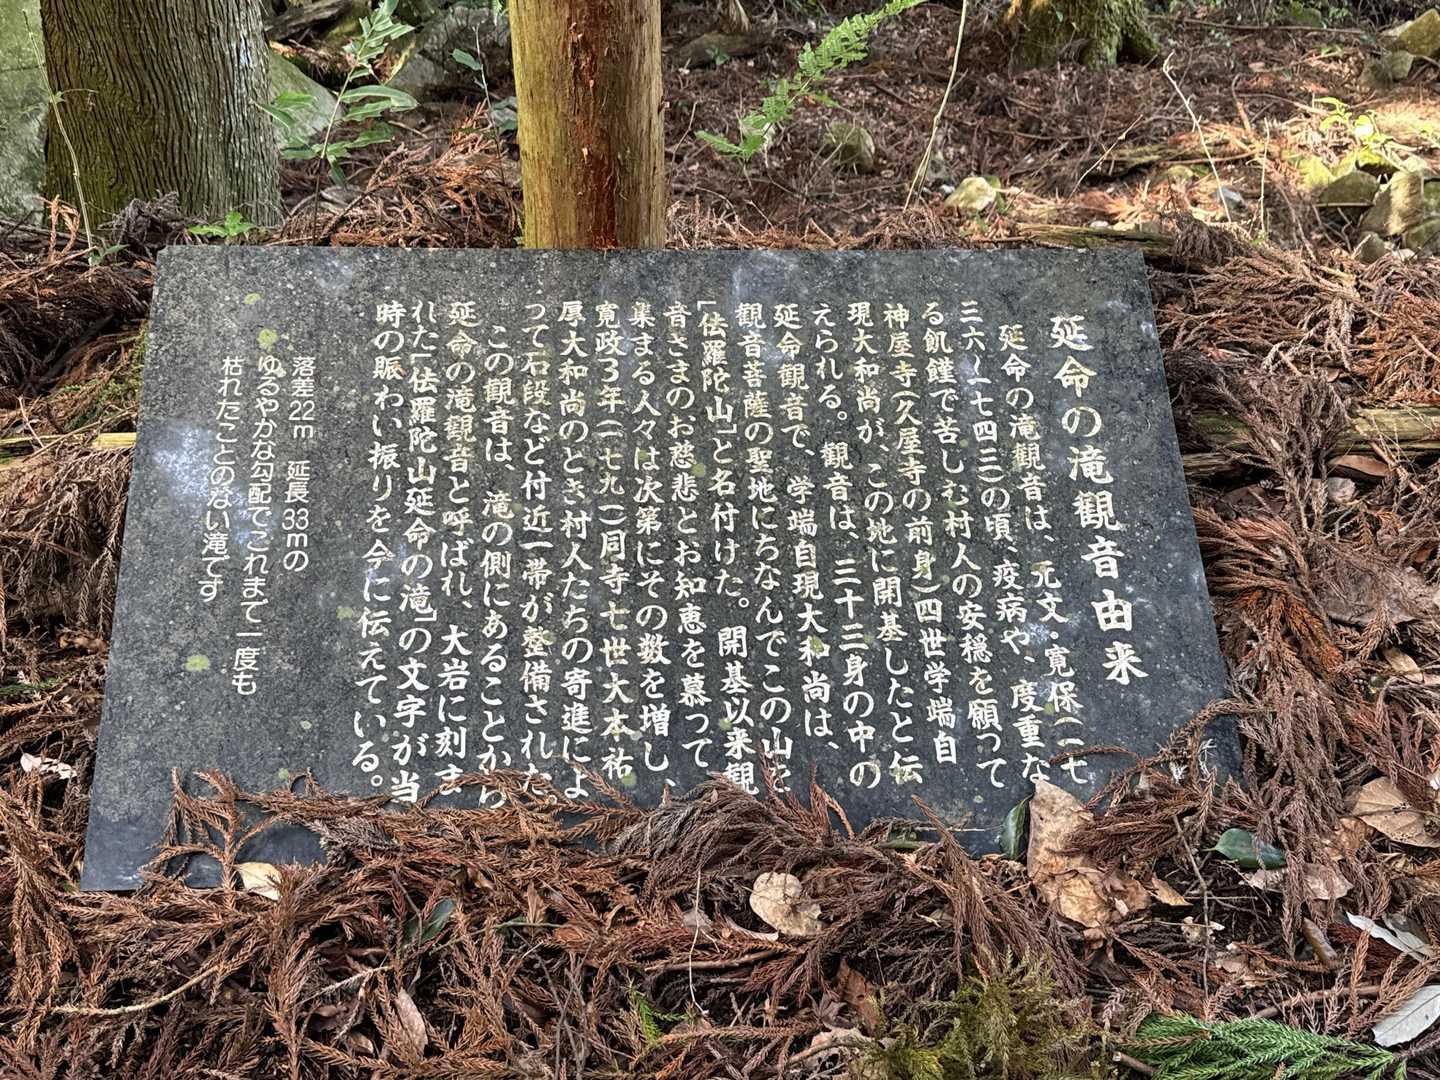 延命の滝観音由来
延命の滝観音は、元文・寛保(一七
三六〜一七四三)の頃、疫病や、度重な
る飢饉で苦しむ村人の安穏を願って
神屋寺(久屋寺の前身)四世学端自
現大和尚が、この地に開基したと伝
えられる。観音は、三十三身の中の
延命観音で、学端自現大和尚は、
観音菩薩の聖地にちなんでこの山を
「佉羅陀山」と名付けた。開基以来観
音さまのお慈悲とお知恵を慕って
集まる人々は次第にその数を増し、
寛政3年(一七九一)同寺七世大本祐
厚大和尚のとき村人たちの寄進によ
って石段など付近一帯が整備された。
この観音は、滝の側にあることから
延命の滝観音と呼ばれ、大岩に刻ま
れた「佉羅陀山延命の滝」の文字が当
時の賑わい振りを今に伝えている。
落差22m 延長33mの
ゆるやかな勾配でこれまで一度も
枯れたことのない滝です